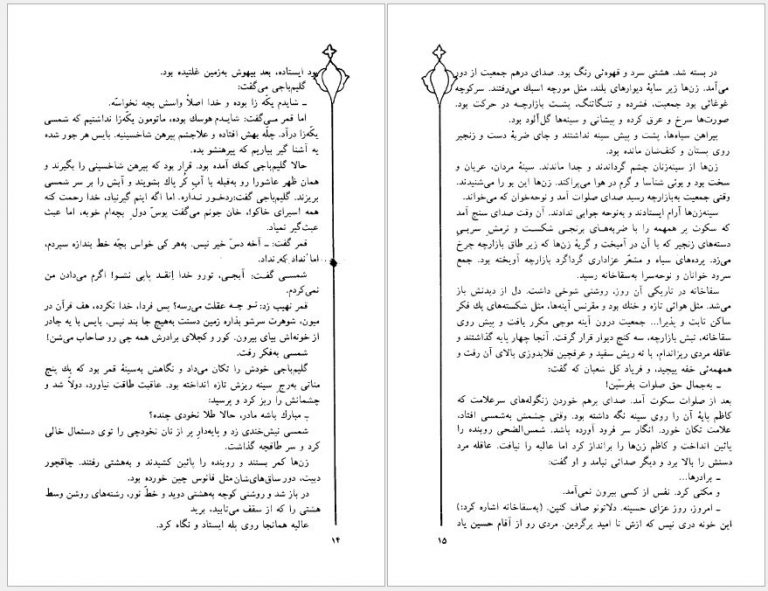 بود ایستاده، بعد بیهوش به‌زمین غلتیده بود.
گلیم‌باجی می‌گفت:
ـ شایدم یکّه زا بوده و خدا اصلاً واسش بچه نخواسّه.
اما قمر می‌گفت: شایدم هوسك بوده، مانومون یکّه‌زا نداشتیم که شمسی
یکّه‌زا درآد. چلّه بهش افتاده و علاجشم بیرهن شاخسینیه. بایس هر جور شده
یه آشنا گیر بیاریم که پیرهنشو بده.
حالا گلیم‌باجی کمك آمده بود. قرار بود که بیرهن شاخسینی را بگیرند و
همان ظهر عاشورا رو به‌قبله با آب کُر پاك بشویند و آبش را بر سر شمسی
بریزند. گلیم‌باجی گفت: ردخور نداره. اما اگه اینم گیرنیاد، خدا رحمت کنه
همه اسیرای خاکو!، خان جونم می‌گفت بوس دول بچه‌ام خوبه، اما عبث
عبث گیر نمیاد.
قمر گفت: ـ آخه دسّ خیر نیس. به‌هر کی خواس بچّه خط بندازه سپردم،
اما نداد که نداد.
شمسی گفت: آبجی، تورو خدا اِنقد پاپی نشو! اگرم می‌دادن من
نمی‌کردم.
قمر نهیب زد: تو چه عقلت می‌رسه؟ پس فردا، خدا نکرده، هف قرآن در
میون، شوهرت سرشو بذاره زمین دستت به‌هیچ جا بند نیس. بایس با یه چادر
از خونه‌اش بیای بیرون. کور و کچلای برادرش همه چی رو صاحاب می‌شن!
شمسی به‌فکر رفت.
گلیم‌باجی خودش را تکان می‌داد و نگاهش به‌سینهٔ قمر بود که یك پنج
مناتی به‌رج سینه ریزش تازه انداخته بود. عاقبت طاقت نیاورد، دولا شد و
چشمانش را ریز کرد و پرسید:
ـ مبارك باشه مادر، حالا طلا نخودی چنده؟
شمسی نیش‌خندی زد و بابه‌دار پر از نان نخودچی را توی دستمال خالی
کرد و سر طاقچه گذاشت.
زن‌ها کمر بستند و روبنده را پائین کشیدند و به‌هشتی رفتند. چاقچور
دبیت، دور ساق‌های‌شان مثل فانوس چین خورده بود.
در باز شد و روشنی کوچه به‌هشتی دوید و خطّ نور، رشته‌های روشن وسط
هشتی را که از سقف می‌تابید، برید
عالیه همانجا روی پله ایستاد و نگاه کرد.
۱۴
در بسته شد. هشتی سرد و قهوه‌ئی رنگ بود. صدای درهم جمعیت از دور
می‌آمد. زن‌ها زیر سایهٔ دیوارهای بلند، مثل مورچه اسبك می‌رفتند. سرکوچه
غوغائی بود جمعیت، فشرده و تنگاتنگ، پشت بازارچه در حرکت بود.
صورت‌ها سرخ و عرق کرده و پیشانی و سینه‌ها گل‌آلود بود.
بیراهن سیاه‌ها، پشت و پیش سینه نداشتند و جای ضربهٔ دست و زنجیر
روی پستان و کتف‌شان مانده بود.
زن‌ها از سینه‌زنان چشم گرداندند و جدا ماندند. سینهٔ مردان، عریان و
سخت بود و بوئی شناسا و گرم در هوا می‌پراکند. زن‌ها این بو را می‌شنیدند.
وقتی جمعیت به‌بازارچه رسید صدای صلوات آمد و نوحه‌خوان که می‌خواند.
سینه‌زن‌ها آرام ایستادند و به‌نوحه جوابی ندادند. آن وقت صدای سنج آمد
که سکوت پر همهمه را با ضربه‌های برنجی شکست و نرمش سریی
دسته‌های زنجیر که با آن در آمیخت و گریهٔ زن‌ها که زیر طاق بازارچه چرخ
می‌زد. پرده‌های سیاه و مشعّر عزاداری گرداگرد بازارچه آویخته بود. جمع
سرود خوانان و نوحه‌سرا به‌سقاخانه رسید.
سقاخانه در تاریکی آن روز، روشنی شوخی داشت. دل از دیدنش باز
می‌شد. مثل هوائی تازه و خنك بود و مقرنس آینه‌ها، مثل شکسته‌های یك فکر
ساکن ثابت و پذیرا... جمعیت درون آینه موجی مکرر یافت و پیش روی
سقاخانه، نبش بازارچه، سه کنج دیوار قرار گرفت. آنجا چهار پایه گذاشتند و
عاقله مردی ریزاندام، با ته ریش سفید و عرقچین قلابدوزی بالای آن رفت و
همهمه‌ئی خفه پیچید، و فریاد کل شعبان که گفت:
ـ به‌جمال حق صلوات بفرسّین!
بعد از صلوات سکوت آمد. صدای برهم خوردن زنگوله‌های سرعلامت که
کاظم پایهٔ آن را روی سینه نگه داشته بود. وقتی چشمش به‌شمسی افتاد،
علامت تکان خورد. انگار سر فرود آورده باشد. شمس‌الضحی روبنده را
پائین انداخت و کاظم زن‌ها را برانداز کرد اما عالیه را نیافت. عاقله مرد
دستش را بالا برد و دیگر صدائی نیامد و او گفت:
ـ برادرها...
و مکثی کرد. نفس از کسی بیرون نمی‌آمد.
ـ امروز، روز عزای حسینه. دلاتونو صاف کنین. (به‌سقاخانه اشاره کرد:)
این خونه دری نیس که ازش نا امید برگردین. مردی رو از آقام حسین یاد
۱۵